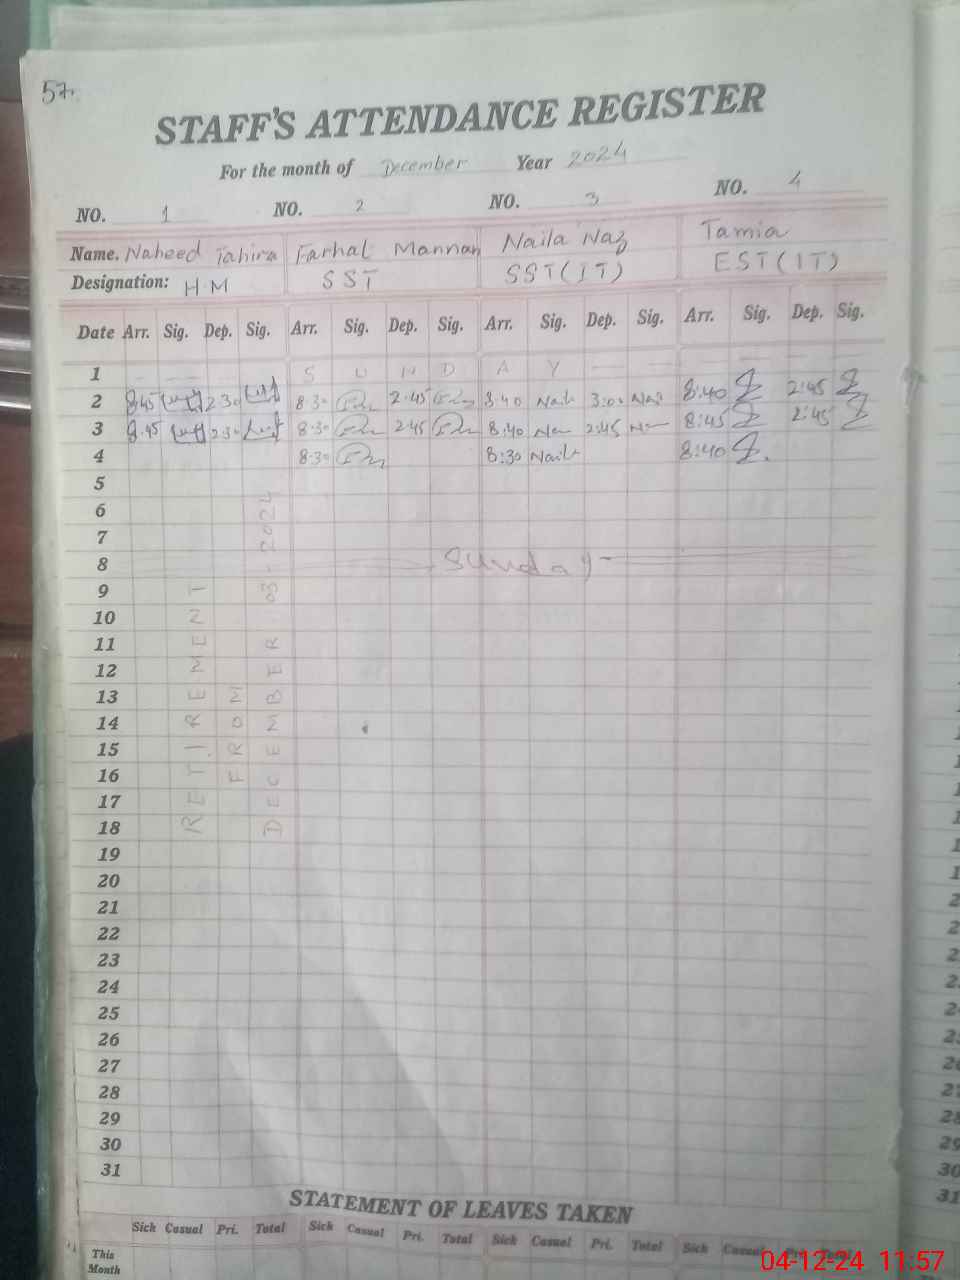 57.
STAFF'S ATTENDANCE REGISTER
For the month of December Year 2024
NO. 1 NO. 2 NO. 3 NO. 4
Name. Naheed Tahira Farhat Mannan Naila Naz Tamia
Designation: H.M SST SST(IT) EST(IT)
Date Arr. Sig. Dep. Sig. Arr. Sig. Dep. Sig. Arr. Sig. Dep. Sig. Arr. Sig. Dep. Sig.
1 S U N D A Y
2 8:45 2:30 8:30 2:45 8:40 Naila 3:00 Nai 8:40 2:45
3 8:45 2:30 8:30 2:45 8:40 2:45 8:45 2:45
4 8:30 8:30 Naila 8:40
5
6
7
8 Sunday
9
10
11
12
13
14
15
16
17
18
19
20
21
22
23
24
25
26
27
28
29
30
31
RETIREMENT
FROM
DECEMBER 03-2024
STATEMENT OF LEAVES TAKEN
Sick Casual Pri. Total Sick Casual Pri. Total Sick Casual Pri. Total Sick Casual Pri. Total
This
Month
04-12-24 11:57